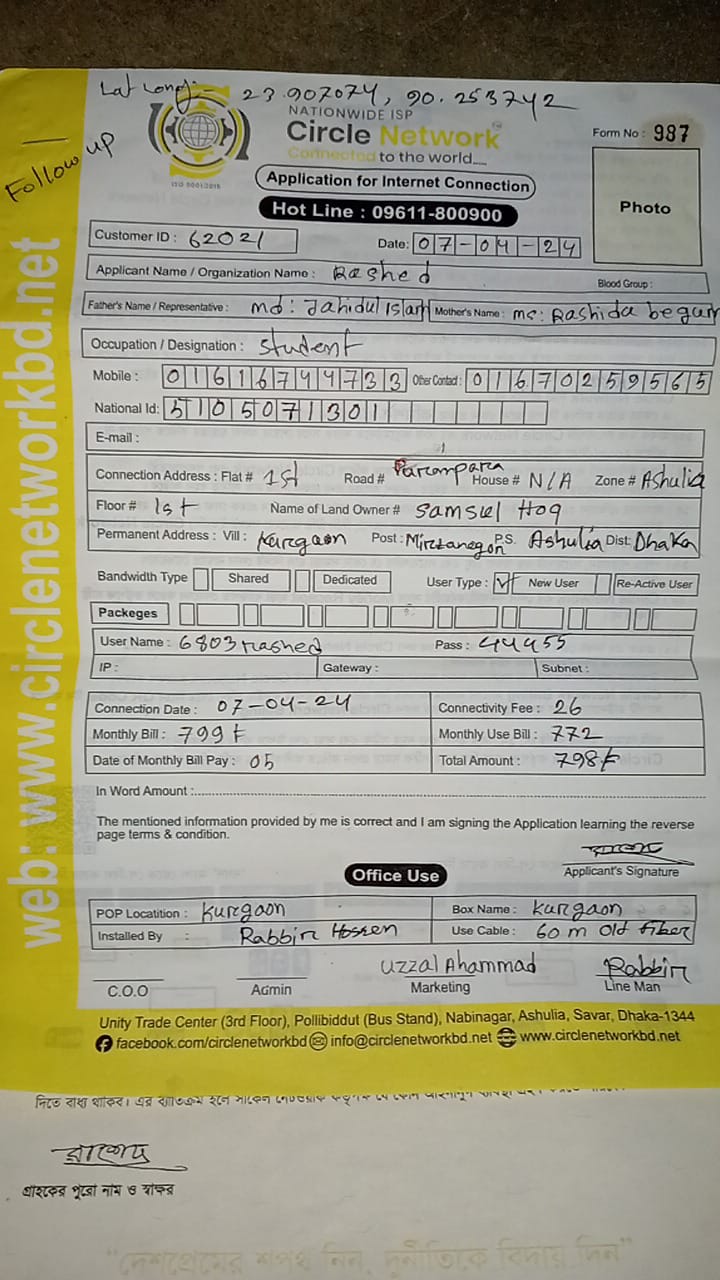 Lat Long:- 23.907074, 90.253742
Follow up
NATIONWIDE ISP
Circle Network
Connected to the world....
ISO 9001:2015
Form No : 987
Application for Internet Connection
Hot Line : 09611-800900
Photo
Customer ID : 62021
Date: 07-04-24
Applicant Name / Organization Name : Rashed
Blood Group :
Father's Name / Representative : md: Jahidul Islam Mother's Name : ms: Rashida begum
Occupation / Designation : Student
Mobile : 01616744733 Other Contact : 01670259565
National Id: 5105071301
E-mail :
Connection Address : Flat # 1st Road # Purampara House # N/A Zone # Ashulia
Floor # 1st Name of Land Owner # Samsul Hoq
Permanent Address : Vill : Kurgaon Post : Mirzanagor P.S. Ashulia Dist: Dhaka
Bandwidth Type Shared Dedicated User Type : New User Re-Active User
Packeges
User Name : 6803rashed Pass : 44455
IP : Gateway : Subnet :
Connection Date : 07-04-24 Connectivity Fee : 26
Monthly Bill : 799 ৳ Monthly Use Bill : 772
Date of Monthly Bill Pay : 05 Total Amount : 798৳
In Word Amount :
The mentioned information provided by me is correct and I am signing the Application learning the reverse
page terms & condition.
রাশেদ
Applicant's Signature
Office Use
POP Locatition : Kurgaon Box Name : Kurgaon
Installed By : Rabbir Hossen Use Cable : 60 m Old fiber
Uzzal Ahammad Rabbir
C.O.O Admin Marketing Line Man
Unity Trade Center (3rd Floor), Pollibiddut (Bus Stand), Nabinagar, Ashulia, Savar, Dhaka-1344
facebook.com/circlenetworkbd info@circlenetworkbd.net www.circlenetworkbd.net
web: www.circlenetworkbd.net
দিতে বাধ্য থাকিব। এর ব্যতিক্রম হলে সার্কেল নেটওয়ার্ক কর্তৃপক্ষ যে কোন
রাশেদ
গ্রাহকের পুরো নাম ও স্বাক্ষর
"দেশপ্রেমের শপথ নিন, দুর্নীতিকে বিদায় দিন"